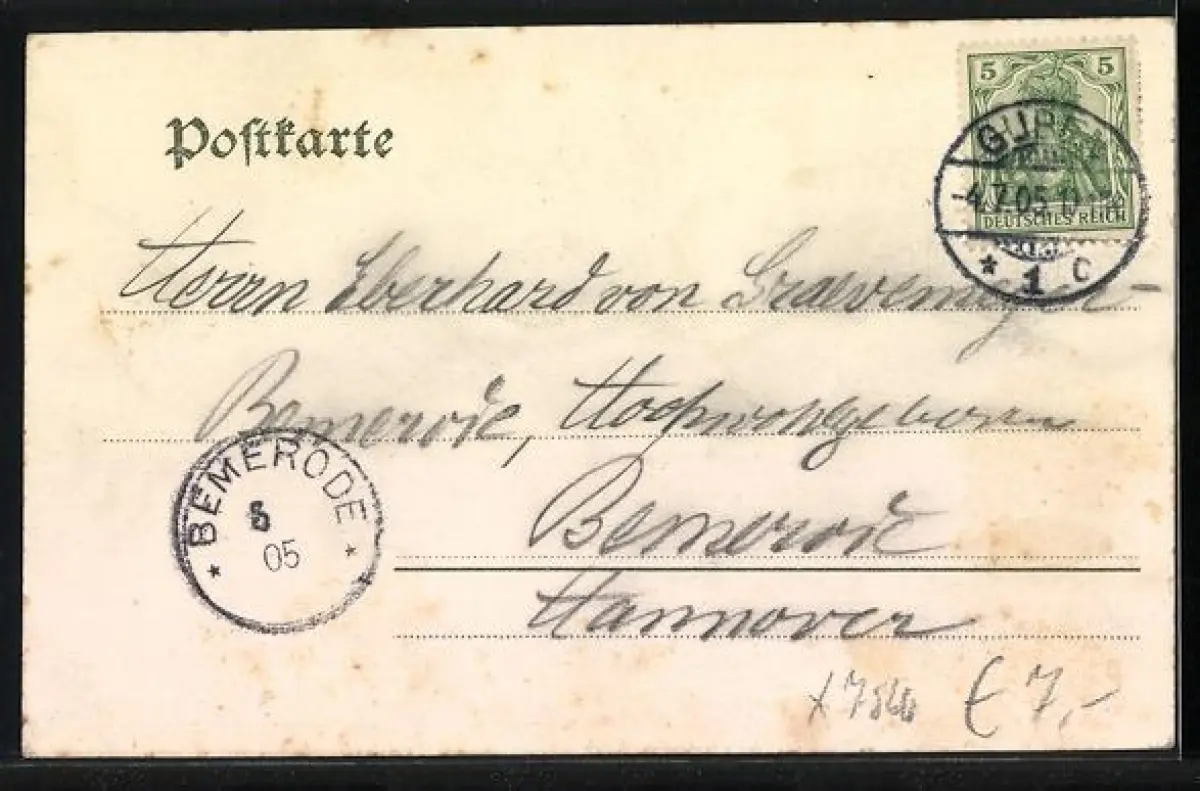 Postkarte
5 5
DEUTSCHES REICH
4.7.05
* 1 c
Herrn Eberhard von
Bemerode, Hochwohlgeboren
Bemerode
Hannover
* BEMERODE *
5
05
€ 7,-